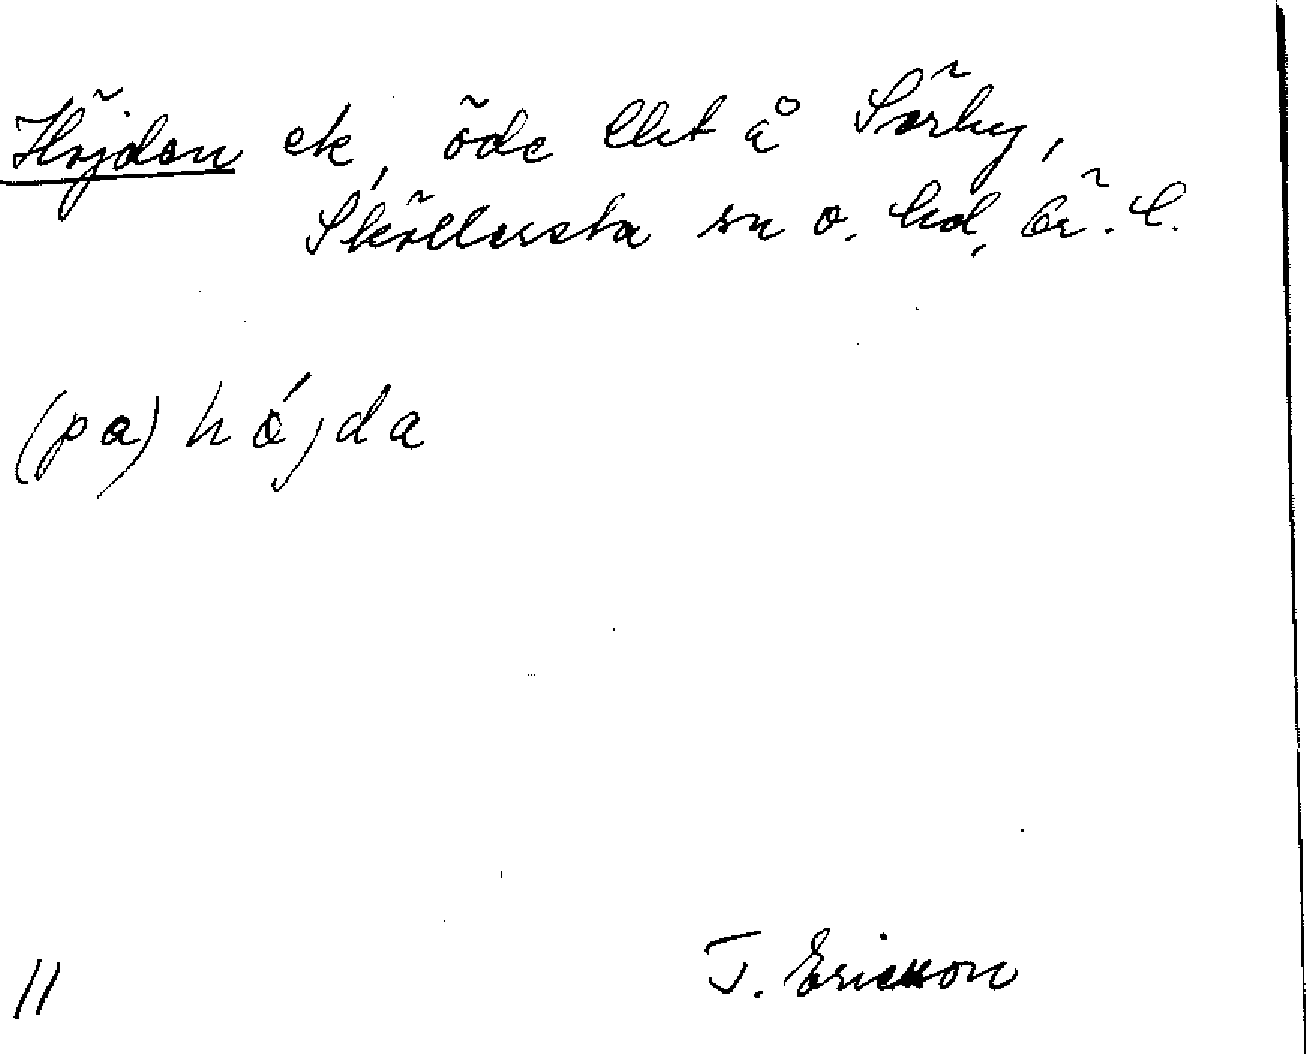 Höjden ek, öde lht å Sörby,
Sköllersta sn o. hd, Ör. l.
(pa) hö́jda
J. Ericsson
11